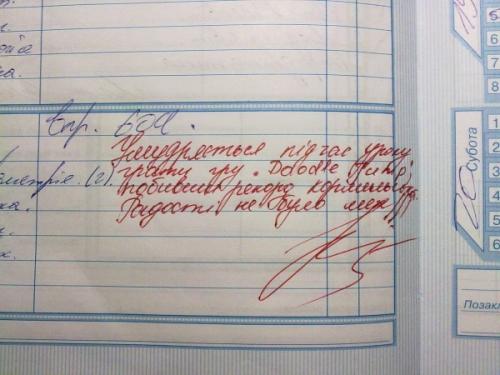 5
6
7
8
Впр. 604.
Умудряється під час уроку
грати гру „Doodle Jump"
побивши рекорд
Радості не було меж!!
20
Субота
1
2
3
4
5
6
Позакл